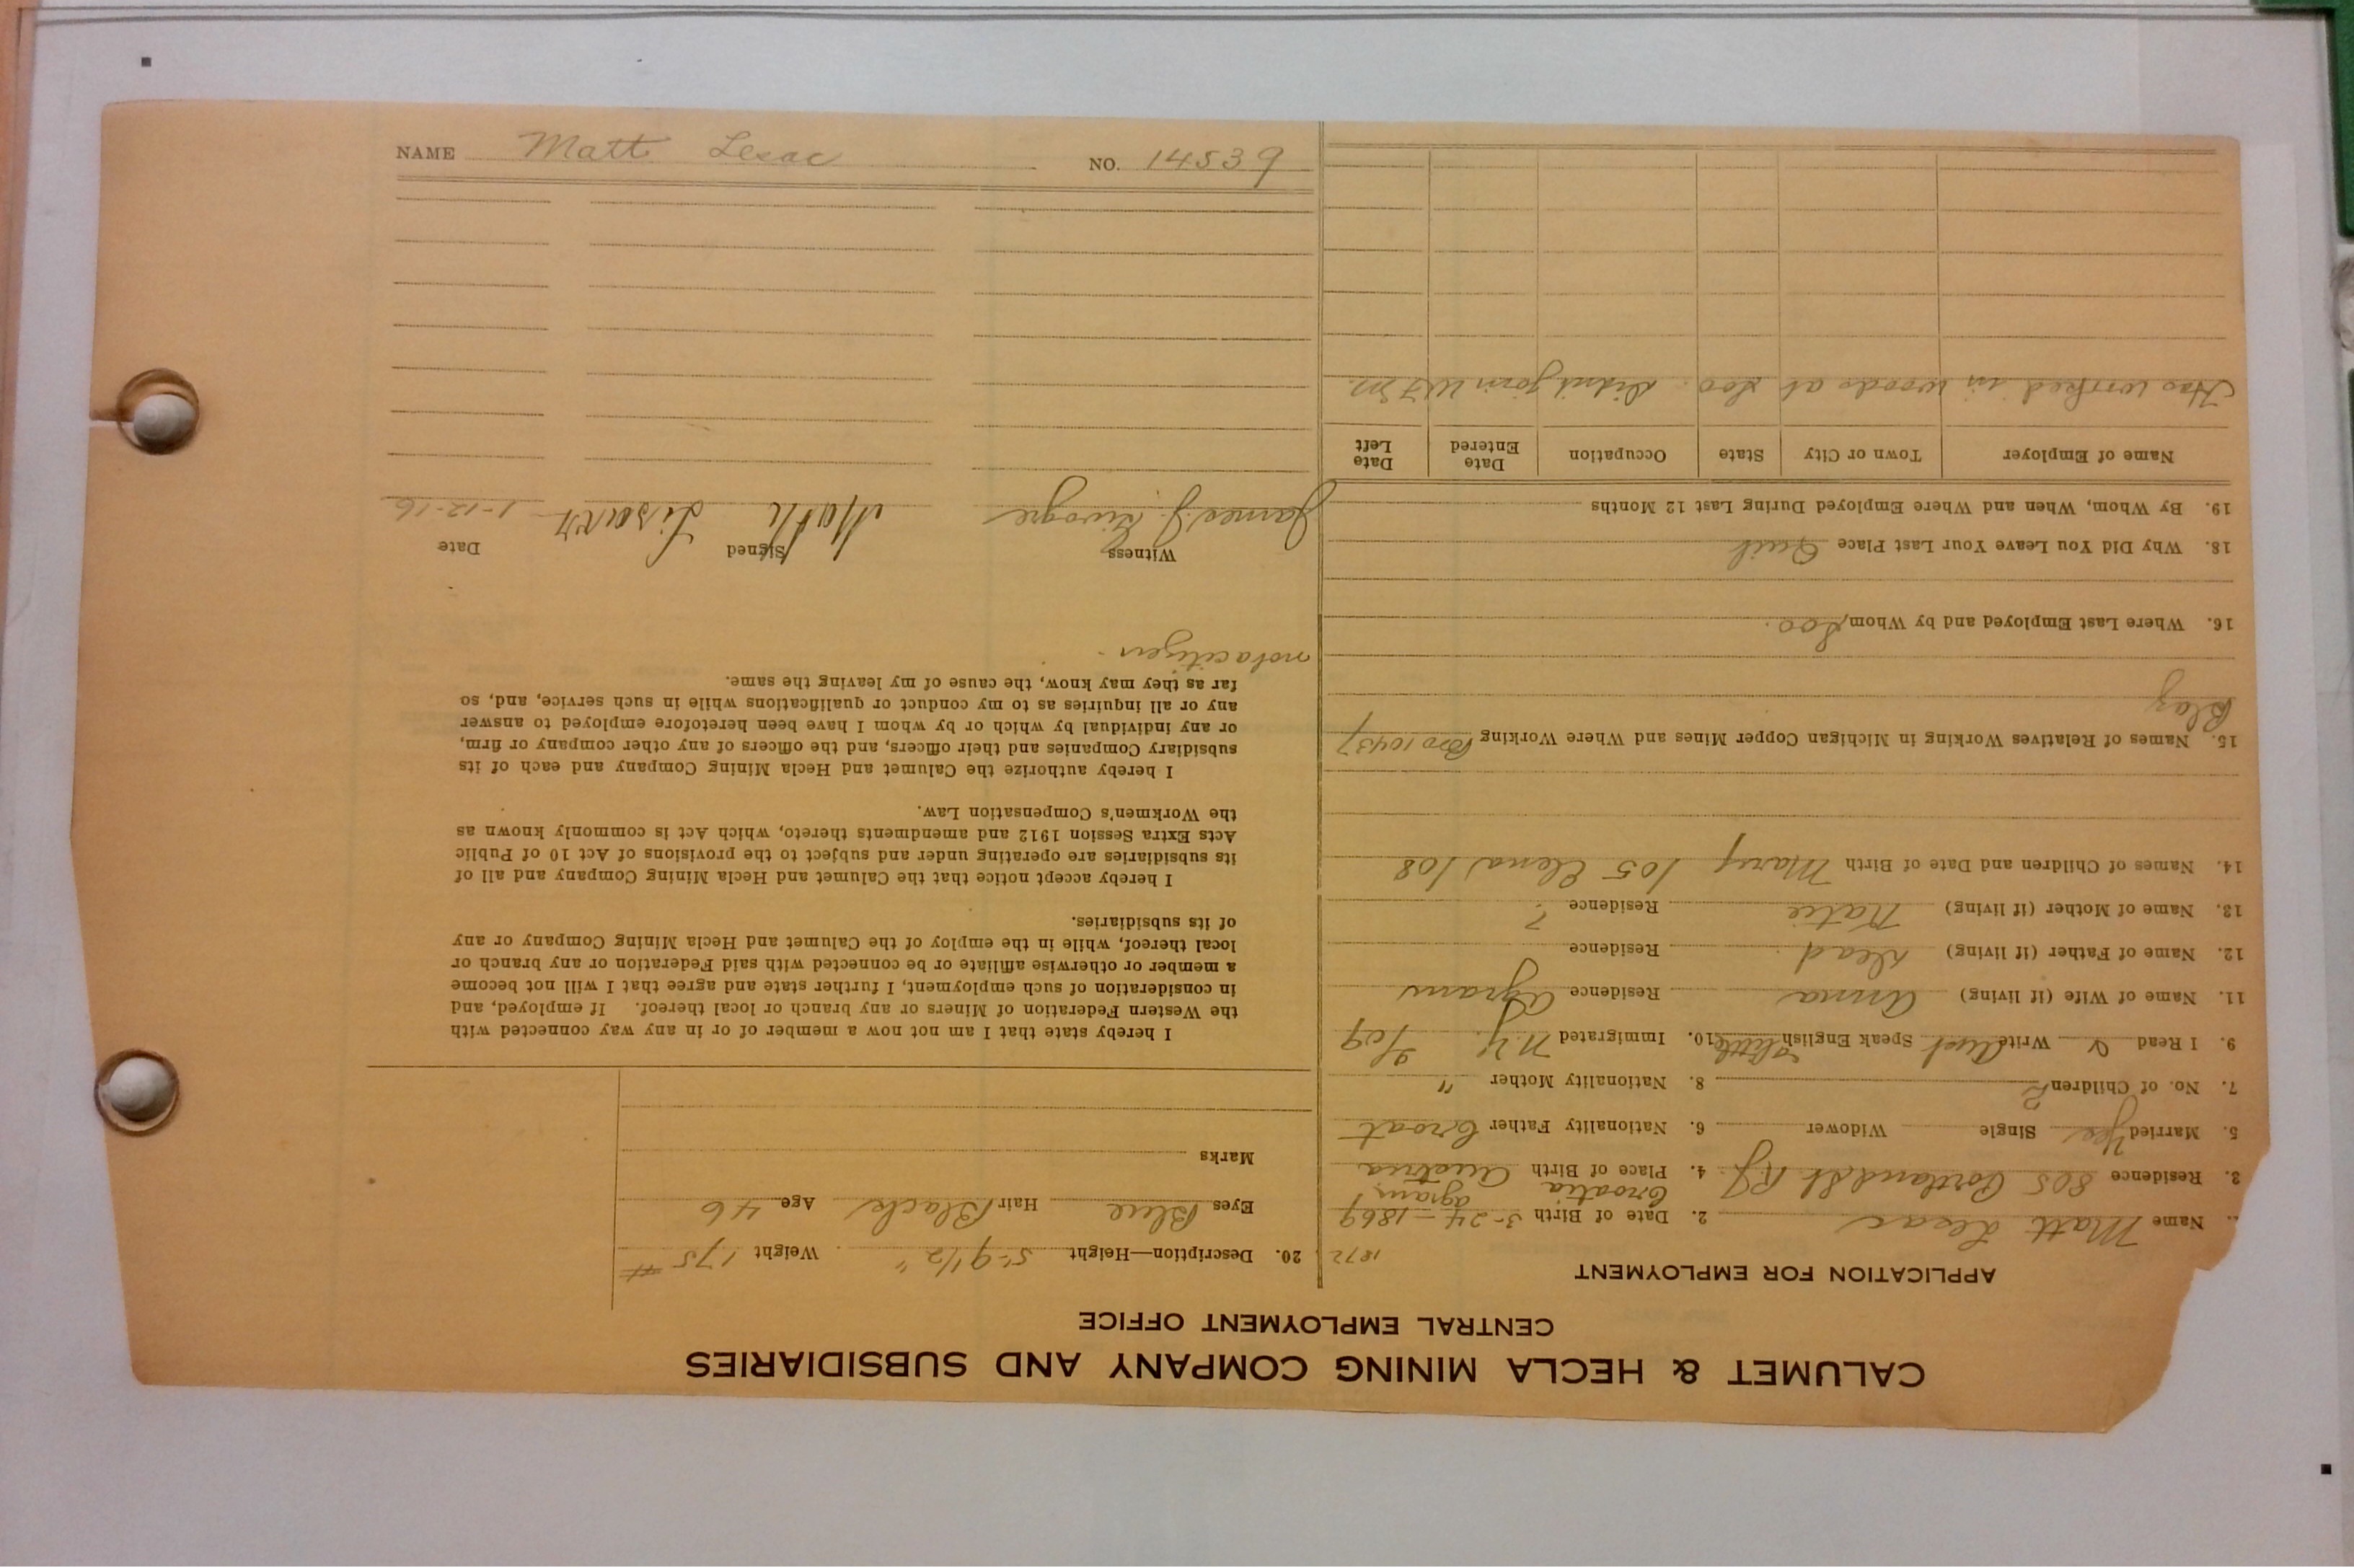 CALUMET & HECLA MINING COMPANY AND SUBSIDIARIES
CENTRAL EMPLOYMENT OFFICE
APPLICATION FOR EMPLOYMENT
Name Matt Lesac 2. Date of Birth 3-24-1869 1872
3. Residence 805 Portland St RJ. 4. Place of Birth Croatia Agram Austria
5. Married Yes Single Widower 6. Nationality Father Croat
7. No. of Children 2 8. Nationality Mother "
9. I Read Write Speak English little 10. Immigrated N.Y. 9/09
11. Name of Wife (if living) Anna Residence Agram
12. Name of Father (if living) Dead Residence
13. Name of Mother (if living) Katie Residence ?
14. Names of Children and Date of Birth Mary 105 Elena 108
15. Names of Relatives Working in Michigan Copper Mines and Where Working Bro 10437
Blaz
16. Where Last Employed and by Whom, Soo.
18. Why Did You Leave Your Last Place Quit
19. By Whom, When and Where Employed During Last 12 Months
Name of Employer Town or City State Occupation Date Entered Date Left
Has worked in woods at Soo. Didnt join W F M.
20. Description—Height 5-9 1/2" Weight 175 #
Eyes Blue Hair Black Age 46
Marks
I hereby state that I am not now a member of or in any way connected with
the Western Federation of Miners or any branch or local thereof. If employed, and
in consideration of such employment, I further state and agree that I will not become
a member or otherwise affiliate or be connected with said Federation or any branch or
local thereof, while in the employ of the Calumet and Hecla Mining Company or any
of its subsidiaries.
I hereby accept notice that the Calumet and Hecla Mining Company and all of
its subsidiaries are operating under and subject to the provisions of Act 10 of Public
Acts Extra Session 1912 and amendments thereto, which Act is commonly known as
the Workmen's Compensation Law.
I hereby authorize the Calumet and Hecla Mining Company and each of its
subsidiary Companies and their officers, and the officers of any other company or firm,
or any individual by which or by whom I have been heretofore employed to answer
any or all inquiries as to my conduct or qualifications while in such service, and, so
far as they may know, the cause of my leaving the same.
not a citizen.
Witness Signed Date
James J. Math 1-12-16
NAME Matt Lesac NO. 14539